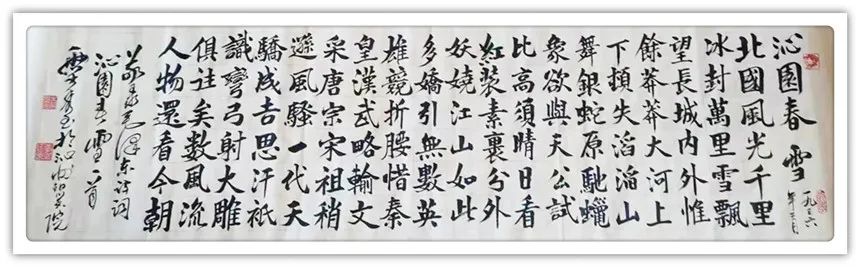 沁園春雪
一九三六
年二月
北國風光千里
冰封萬里雪飄
望長城內外惟
餘莽莽大河上
下頓失滔滔山
舞銀蛇原馳蠟
象欲與天公試
比高須晴日看
紅装素裹分外
妖嬈江山如此
多嬌引無數英
雄競折腰惜秦
皇漢武略輸文
采唐宗宋祖稍
遜風騷一代天
驕成吉思汗祇
識彎弓射大雕
俱往矣数風流
人物還看今朝
毛澤东詩詞
沁園春雪一首
院